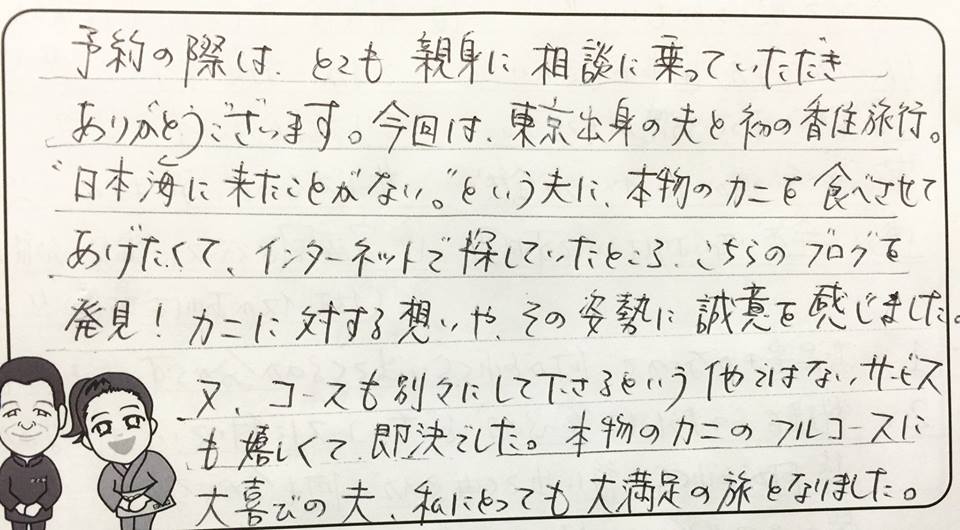 予約の際は、とても親身に相談に乗っていただき
ありがとうございます。今回は、東京出身の夫と初の香住旅行。
"日本海に来たことがない。"という夫に、本物のカニを食べさせて
あげたくて、インターネットで探していたところ、こちらのブログを
発見！カニに対する想いや、その姿勢に誠意を感じました。
又、コースも別々にして下さるという他ではないサービス
も嬉しくて、即決でした。本物のカニのフルコースに
大喜びの夫、私にとっても大満足の旅となりました。